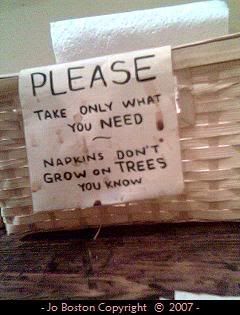 PLEASE
TAKE ONLY WHAT
YOU NEED
~
NAPKINS DON'T
GROW ON TREES
YOU KNOW
- Jo Boston Copyright © 2007 -